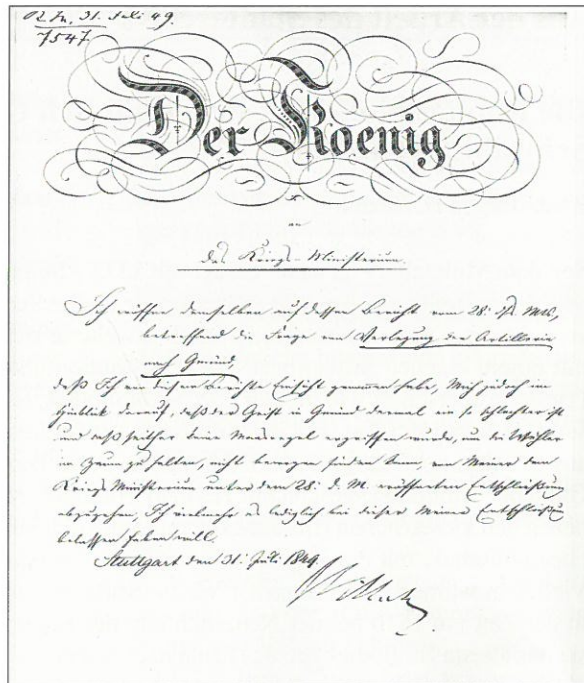 31. Juli 49.
7547.
Der Koenig
an
das Kriegs-Ministerium.
Ich eröffne demselben auf dessen Bericht vom 28. dß. Mts.,
betreffend die Frage von Verlegung der Artillerie
nach Gmünd,
daß Ich von diesem Berichte Einsicht genommen habe, Mich jedoch im
Hinblik darauf, daß der Geist in Gmünd dermal ein so schlechter ist
und daß seither keine Maasregel ergriffen wurde, um die Wühler
im Zaum zu halten, nicht bewogen finden kann, von Meiner dem
Kriegs Ministerium unter dem 28. d. M. eröffneten Entschließung
abzugehen, Ich vielmehr es lediglich bei dieser Meiner Entschließung
belassen haben will.
Stuttgart den 31. Juli 1849.
Wilhelm